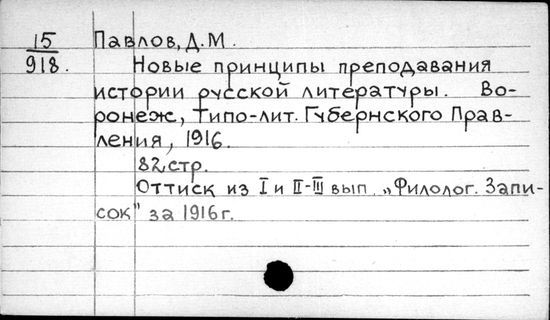 15 Павлов, Д.М.
918. Новые принципы преподавания
истории русской литературы. Во-
ронеж, Типо-лит. Губернского Прав-
ления, 1916.
82 стр.
Оттиск из I и II-III вып. „Филолог. Запи-
сок" за 1916 г.